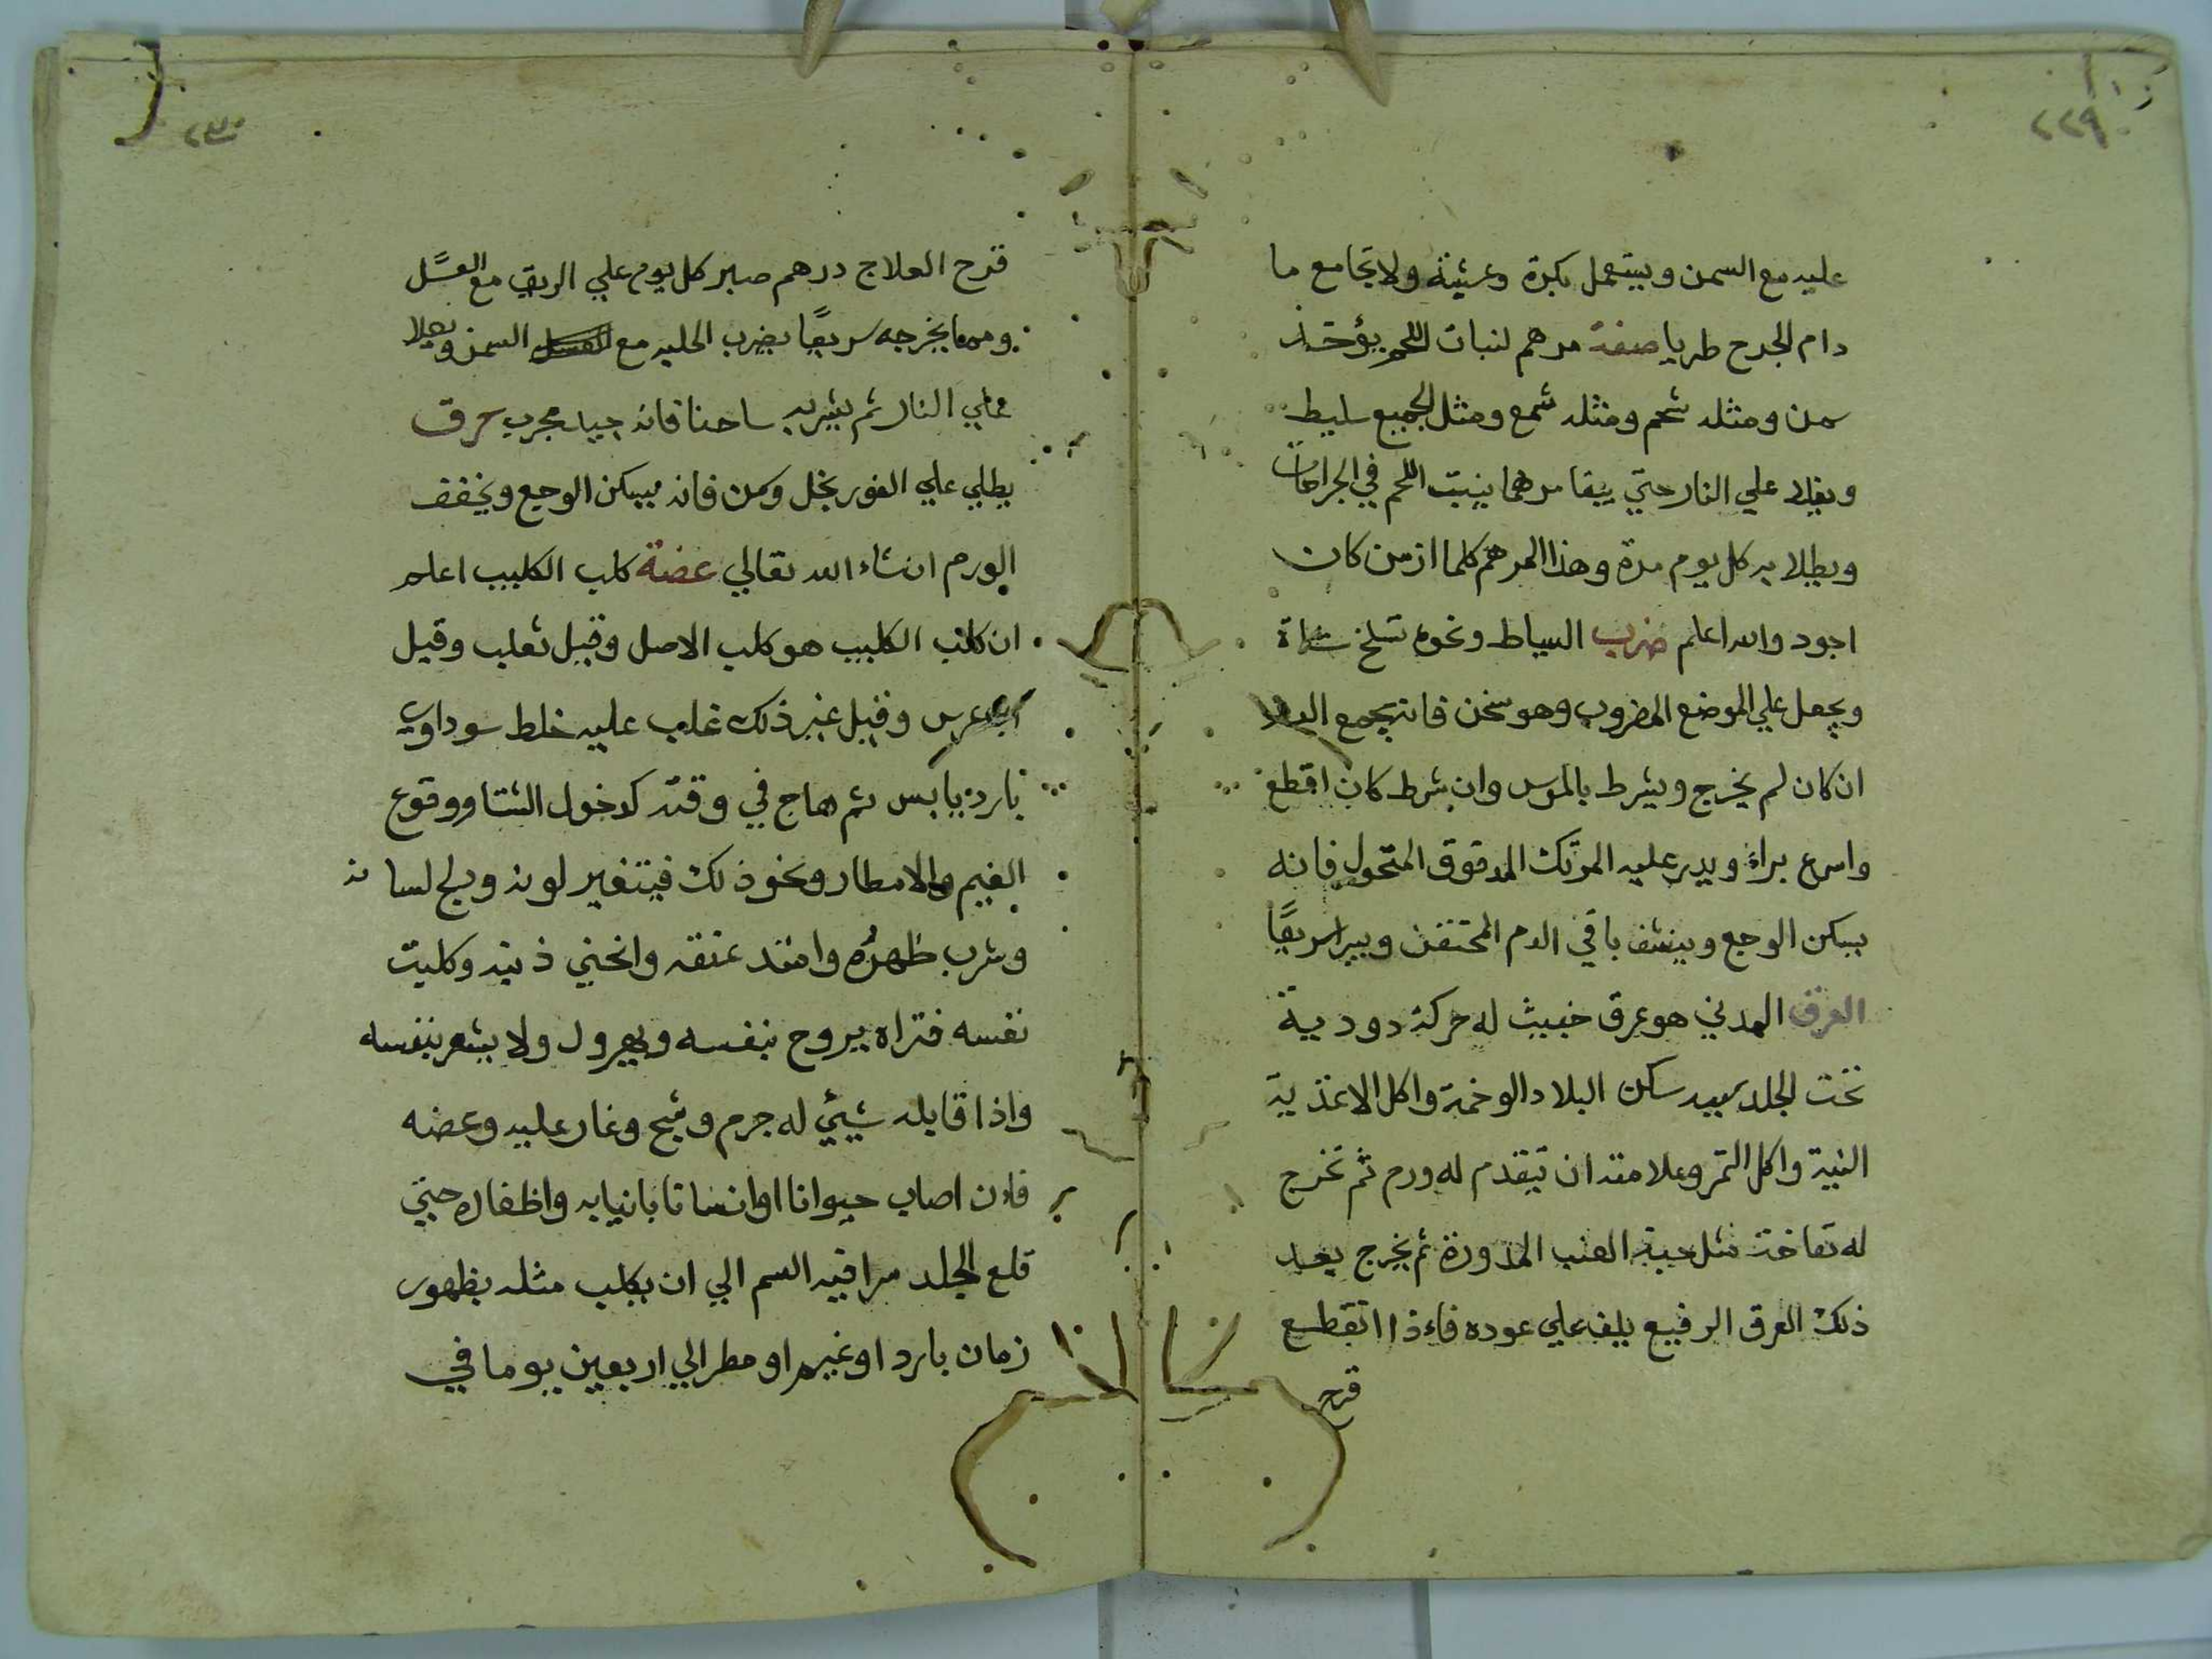 ٢٢٩
عليه مع السمن ويستعمل بكرة وعشية ولا يجامع ما
دام الجرح طريا صفة مرهم لنبات اللحم يؤخذ
سمن ومثله شحم ومثله شمع ومثل الجميع سليط
ويغلا علي النار حتي يبقا مرهما ينبت اللحم في الجراحات
ويطلا به كل يوم مرة وهذا المرهم كلما ازمن كان
اجود والله اعلم ضرب السياط ونحوه تسلخ شاة
ويجعل علي الموضع المضروب وهو سخن فانه يجمع
ان كان لم يخرج ويشرط بالموس وان شرط كان اقطع
واسرع براء ويدر عليه المرتك المدقوق المنخول فانه
يسكن الوجع وينشف باقي الدم المحتقن ويبرا سريعًا
العرق المدني هو عرق خبيث له حركة دودية
تخت الجلد سببه سكن البلاد الوخمة واكل الاغذية
النية واكل التمر وعلامته ان يتقدم له ورم ثم تخرج
له نفاخة مثل حبة العنب المدورة ثم يخرج بعد
ذلك العرق الرفيع يلف علي عوده فاءذا انقطع
قرح
٢٣٠
قرح العلاج درهم صبر كل يوم علي الريق مع العسَل
ومما يخرجه سريعًا يضرب الحلبه مع السمن ويغلا
علي النار ثم يشربه ساخنا فانه جيد مجرب حرق
يطلي علي الفور بخل وسمن فانه يسكن الوجع ويخفف
الورم انشاء الله تعالي عضة كلب الكليب اعلم
ان كلب الكليب هو كلب الاصل وقيل ثعلب وقيل
عرس وقيل غير ذلك غلب عليه خلط سوداوي
بارد يابس ثم هاج في وقته كدخول الشتا ووقوع
الغيم والامطار ونحو ذلك فيتغير لونه ودلج لسانه
وشرب ظهره وامتد عنقه وانحني ذنبه وكلبت
نفسه فتراه يروح بنفسه ويهرول ولا يشعر بنفسه
واذا قابله شيئي له جرم وشبح وغار عليه وعضه
فاءن اصاب حيوانا او انسانا بانيابه واظفاره حتي
قلع الجلد سرا فيه السم الي ان يكلب مثله بظهور
زمان بارد او غيم او مطر الي اربعين يوما في